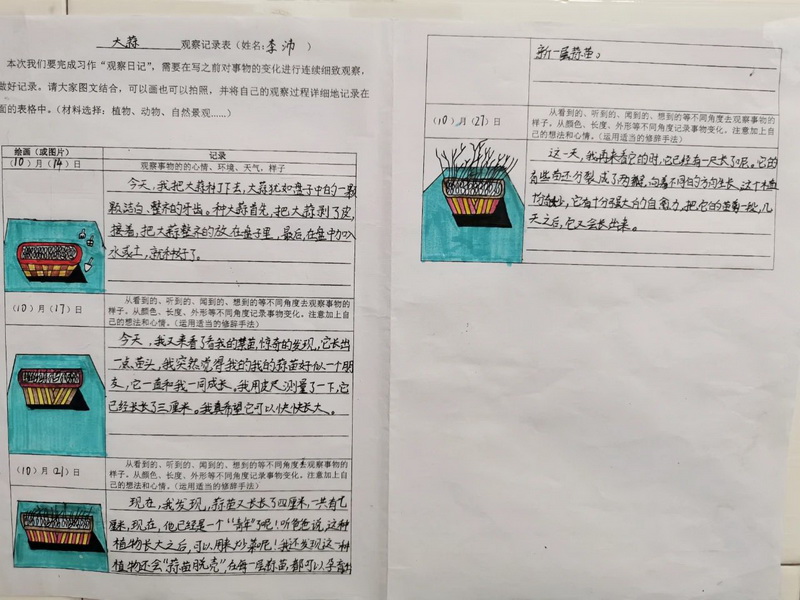 大蒜 观察记录表（姓名：李沛 ）
本次我们要完成习作“观察日记”，需要在写之前对事物的变化进行连续细致观察，
做好记录。请大家图文结合，可以画也可以拍照，并将自己的观察过程详细地记录在
面的表格中。（材料选择：植物、动物、自然景观……）
绘画（或图片） 记录
（10）月（14）日 观察事物的的心情、环境、天气，样子
今天，我把大蒜种了下去，大蒜犹如盘子中的一颗
颗洁白、整齐的牙齿。种大蒜首先，把大蒜剥了皮，
接着，把大蒜整齐的放在盘子里，最后，在盘中加入
水或土，就种好了。
（10）月（17）日 从看到的、听到的、闻到的、想到的等不同角度去观察事物的
样子。从颜色、长度、外形等不同角度记录事物变化。注意加上自
己的想法和心情。（运用适当的修辞手法）
今天，我又来看了看我的蒜苗，惊奇的发现，它长出
一点苗头，我突然觉得我的我的蒜苗好似一个朋
友，它一直和我一同成长。我用皮尺测量了一下，它
已经长长了三厘米。我真希望它可以快快长大。
（10）月（21）日 从看到的、听到的、闻到的、想到的等不同角度去观察事物的
样子。从颜色、长度、外形等不同角度记录事物变化。注意加上自
己的想法和心情。（运用适当的修辞手法）
现在，我发现，蒜苗又长长了四厘米，一共有七
厘米，现在，他已经是一个“青年”了呢！听爸爸说，这种
植物长大之后，可以用来炒菜呢！我还发现这一种
植物还会“蒜苗脱壳”，在每一层蒜苗，都可以孕育出
新一层蒜苗。
（10）月（27）日 从看到的、听到的、闻到的、想到的等不同角度去观察事物的
样子。从颜色、长度、外形等不同角度记录事物变化。注意加上自
己的想法和心情。（运用适当的修辞手法）
这一天，我再来看它的时，它已经有一尺长了呢。它的
有些苗还分裂成了两瓣，向着不同的方向生长。这个植
物，它有十分强大的自愈力，把它的茎剪一段，几
天之后，它又会长出来。